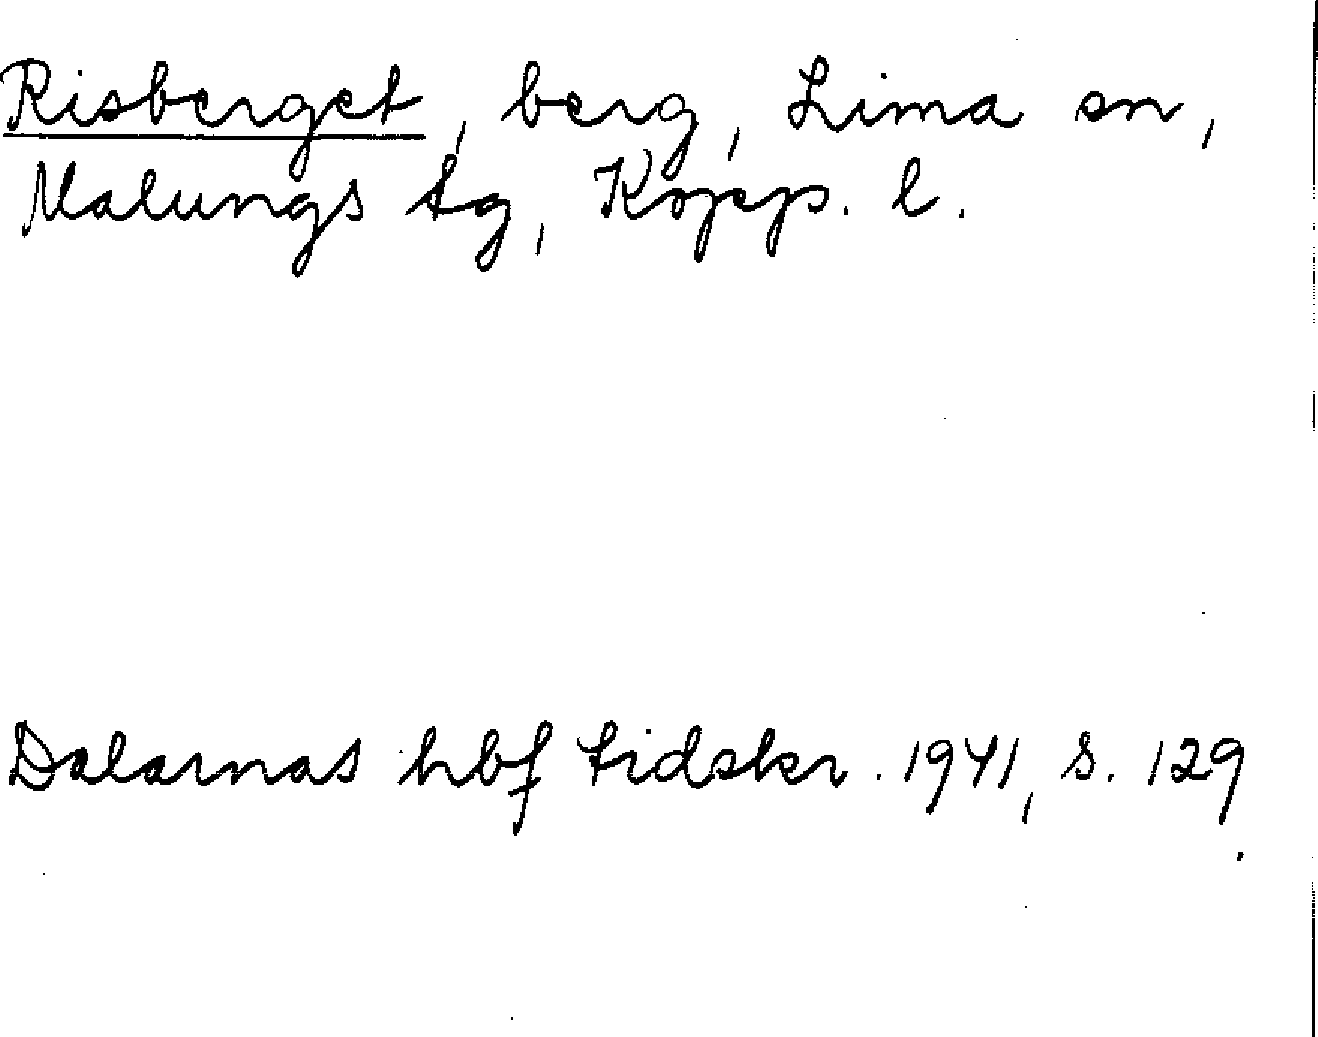 Risberget, berg, Lima sn,
Malungs tg, Kopp. l.
Dalarnas hbf tidskr. 1941, s. 129.